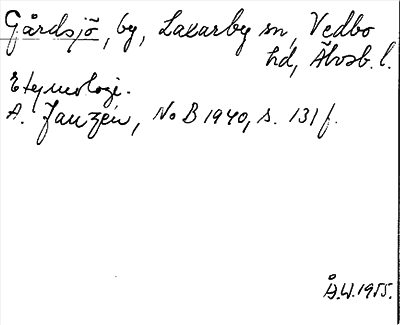 Gårdsjö, by, Laxarby sn, Vedbo
hd, Älvsb. l.
Etymologi.
A. Janzén, NoB 1940, s. 131 f.
Å.W. 1955.